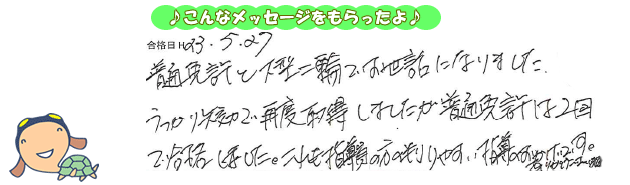 ♪こんなメッセージをもらったよ♪
合格日 H23.5.27
普通免許と大型二輪でお世話になりました.
うっかり失効で再度取得しましたが普通免許は2回
で合格しました。これも指導員の方の判りやすい指導のおかげです。